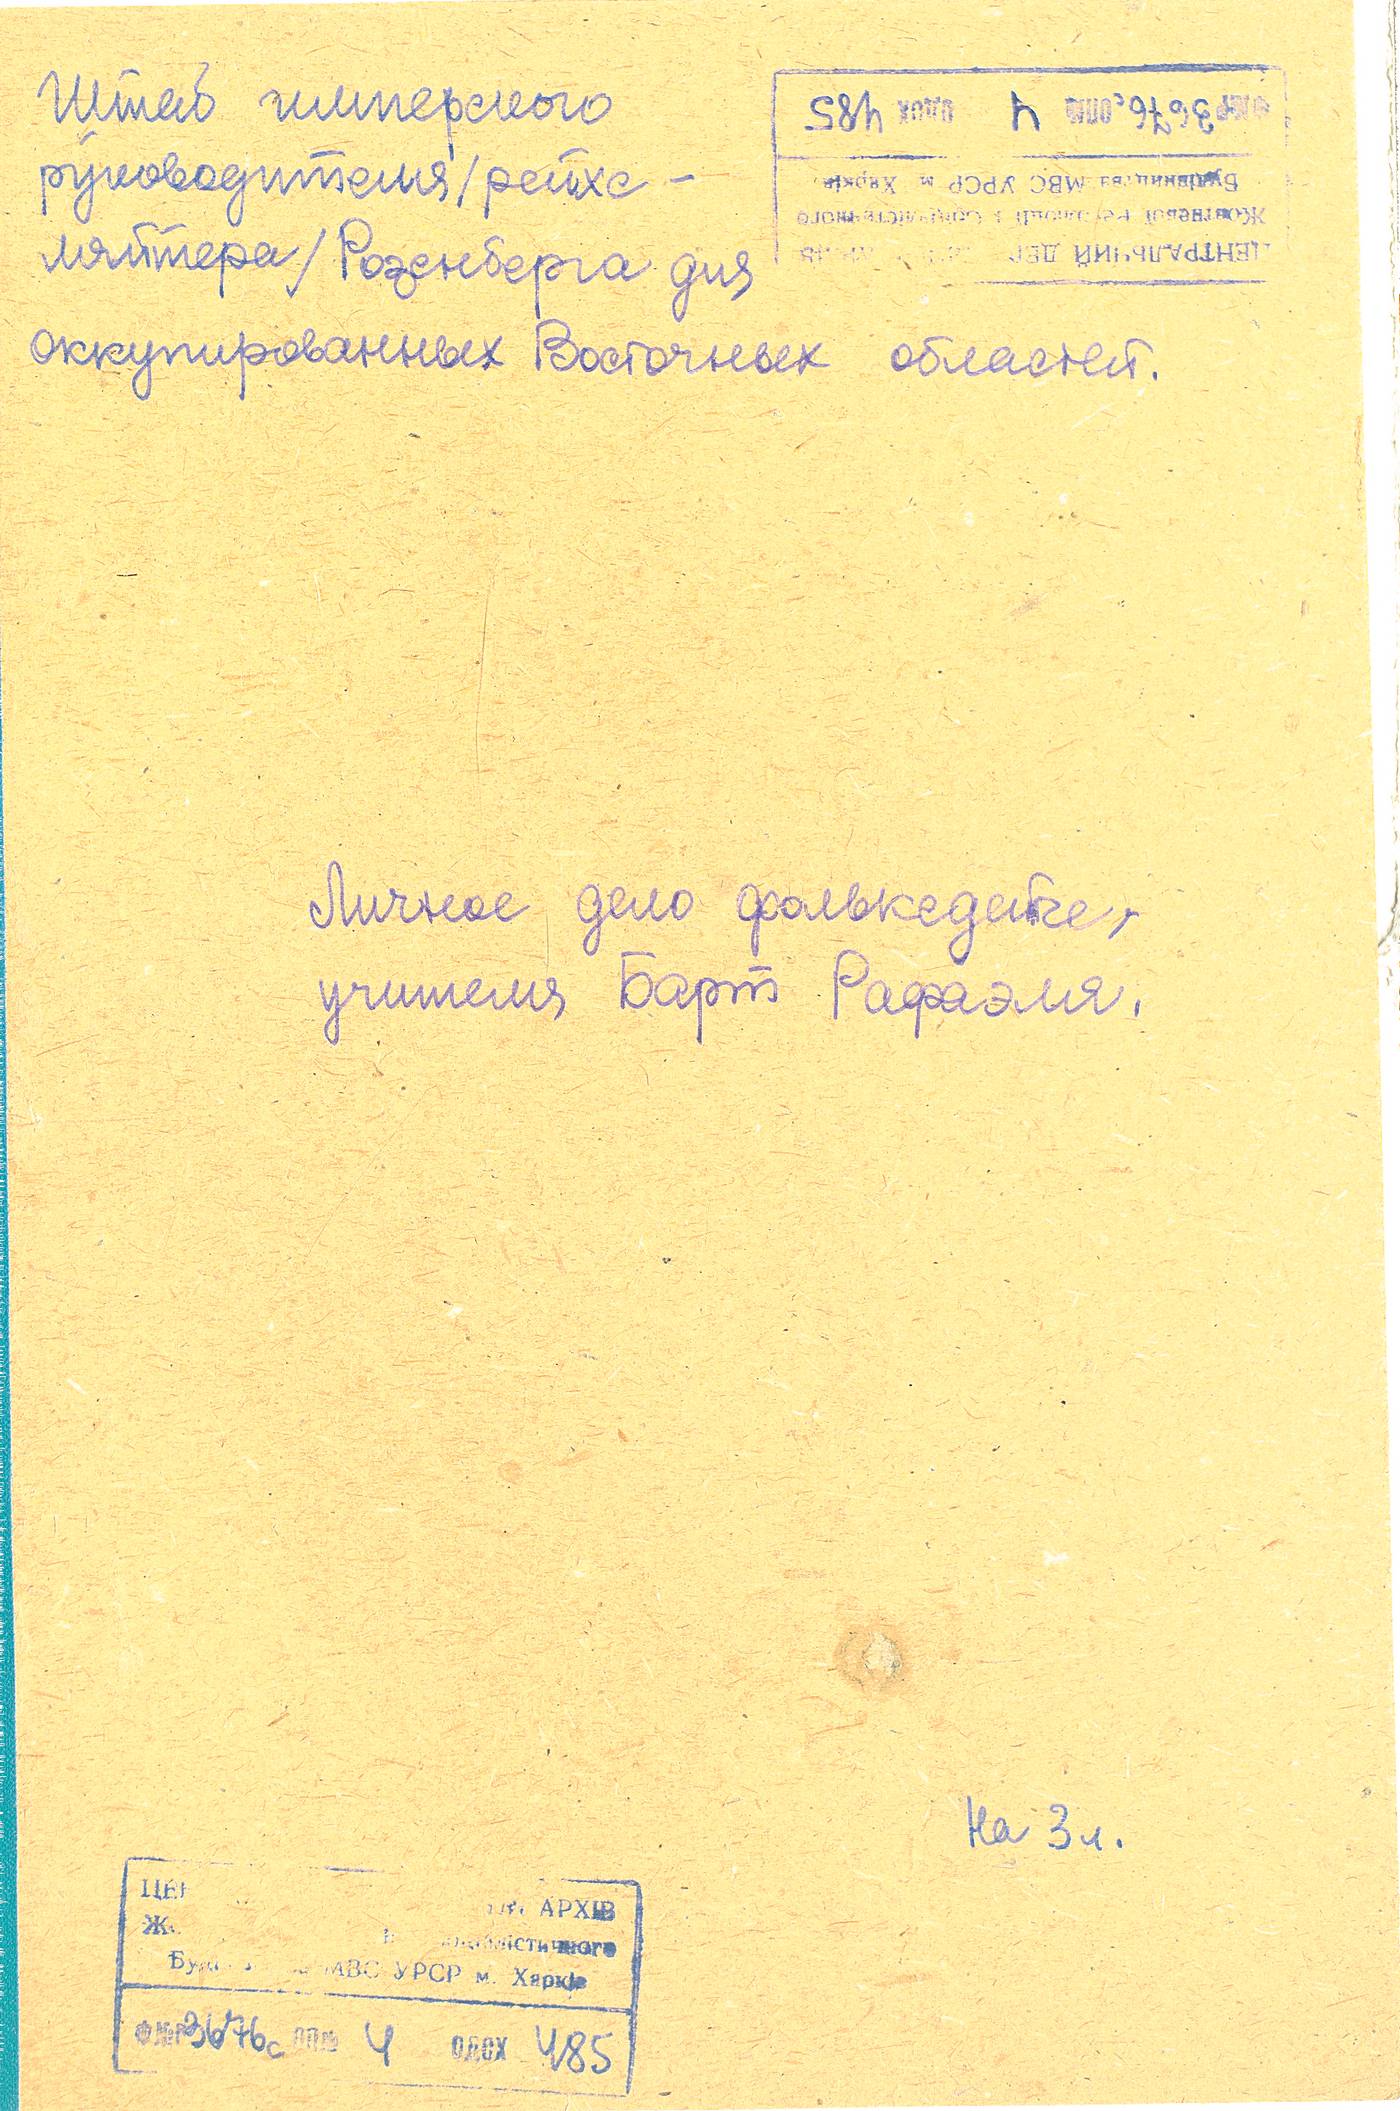 Штаб имперского
руководителя/рейхс-
ляйтера/Розенберга для
оккупированных Восточных областей.
ЦЕНТРАЛЬНИЙ ДЕР
Жовтневої революції і соціалістичного
Будівництва МВС УРСР м. Харків
Ф.№Р 3676с ОП№ 4 ОДОХ 485
Личное дело фольксдейче,
учителя Барт Рафаэля.
На 3 л.
АРХІВ
Ж
МВС УРСР м. Харків
Ф№Р 3676с ОП№ 4 ОДОХ 485